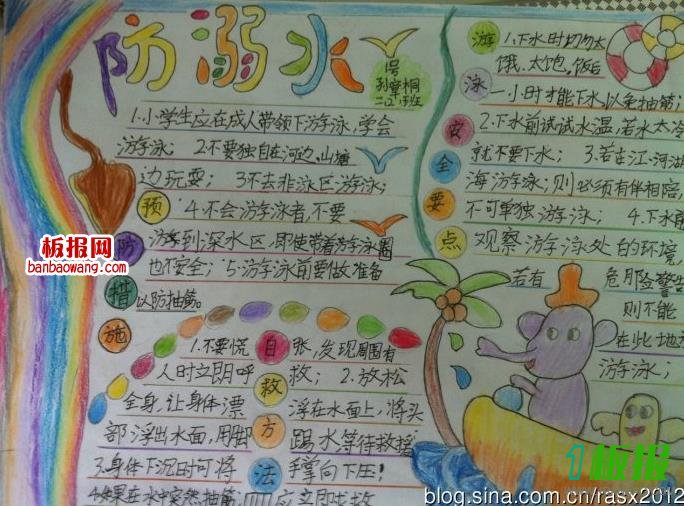 防溺水
1号
二12班
预防措施
1.小学生应在成人带领下游泳,学会
游泳; 2.不要独自在河边、山塘
边玩耍; 3.不去非泳区游泳;
4.不会游泳者,不要
游到深水区,即使带着游泳圈
也不安全;5.游泳前要做准备
以防抽筋。
游泳安全要点
1.下水时切勿太
饿、太饱。饭后
一小时才能下水,以免抽筋;
2.下水前试试水温,若水太冷
就不要下水; 3.若在江、河、湖
海游泳,则必须有伴相陪,
不可单独游泳; 4.下水前
观察游泳处的环境,
若有危险警告
则不能
在此地方
游泳;
自救方法
1.不要慌张,发现周围有
人时立即呼救; 2.放松
全身,让身体漂浮在水面上,将头
部浮出水面,用脚踢水等待救援
3.身体下沉时可将手掌向下压;
4.如果在水中突然抽筋
板报网
banbaowang.com
1板报
blog.sina.com.cn/rasx2012